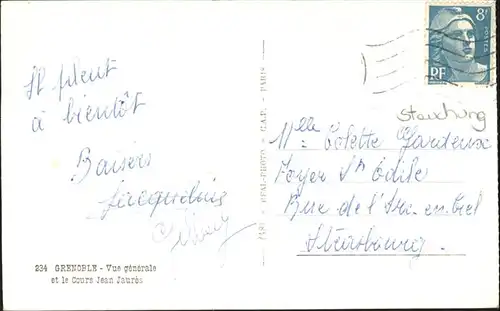 Il pleut
à bientôt
Baisers
Jacqueline
234 GRENOBLE - Vue générale
et le Cours Jean Jaurès
REAL-PHOTO - C.A.P. - PARIS
8F
POSTES
RF
Stauchung
Mlle Colette
Foyer Ste Odile
Rue de l'Arc en Ciel
Strasbourg.